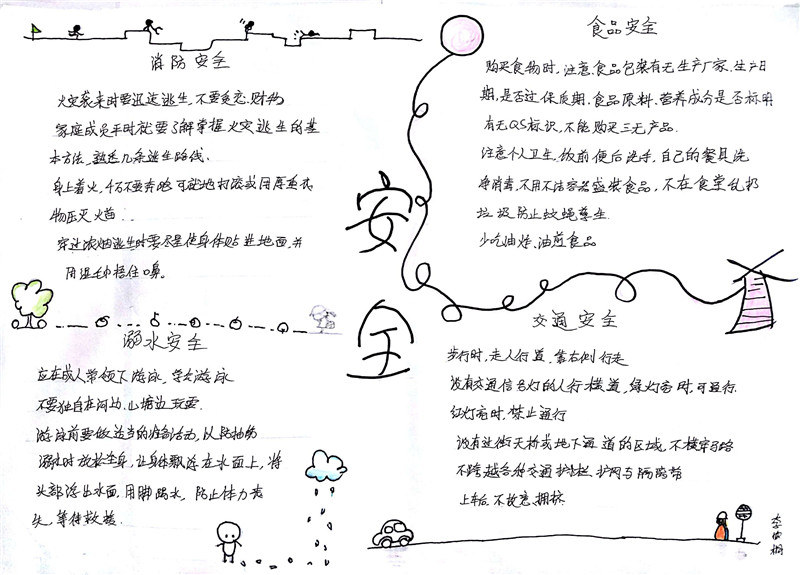 消防安全
火灾袭来时要迅速逃生,不要贪恋财物
家庭成员平时就要了解掌握火灾逃生的基
本方法,熟悉几条逃生路线.
身上着火,千万不要奔跑可就地打滚或用厚重衣
物压灭火苗..
穿过浓烟逃生时要尽量使身体贴近地面,并
用湿毛巾捂住口鼻。
溺水安全
应在成人带领下游泳,学好游泳
不要独自在河边、山塘边玩耍.
游泳前要做适当的准备活动,以防抽筋
溺水时放松全身,让身体飘浮在水面上,将
头部浮出水面.用脚踢水,防止体力丧
失,等待救援.
安全
食品安全
购买食物时,注意食品包装有无生产厂家、生产日
期,是否过保质期,食品原料、营养成分是否标明
有无QS标识,不能购买三无产品.
注意个人卫生,饭前便后洗手,自己的餐具洗
净消毒,不用不洁容器盛装食品,不在食堂乱扔
垃圾防止蚊蝇孳生.
少吃油炸、油煎食品
交通安全
步行时,走人行道,靠右侧行走
没有交通信号灯的人行横道,绿灯亮时,可通行.
红灯亮时,禁止通行
没有过街天桥或地下通道的区域,不横穿马路
不跨越各种交通护栏、护网与隔离带
上车后,不故意拥挤.